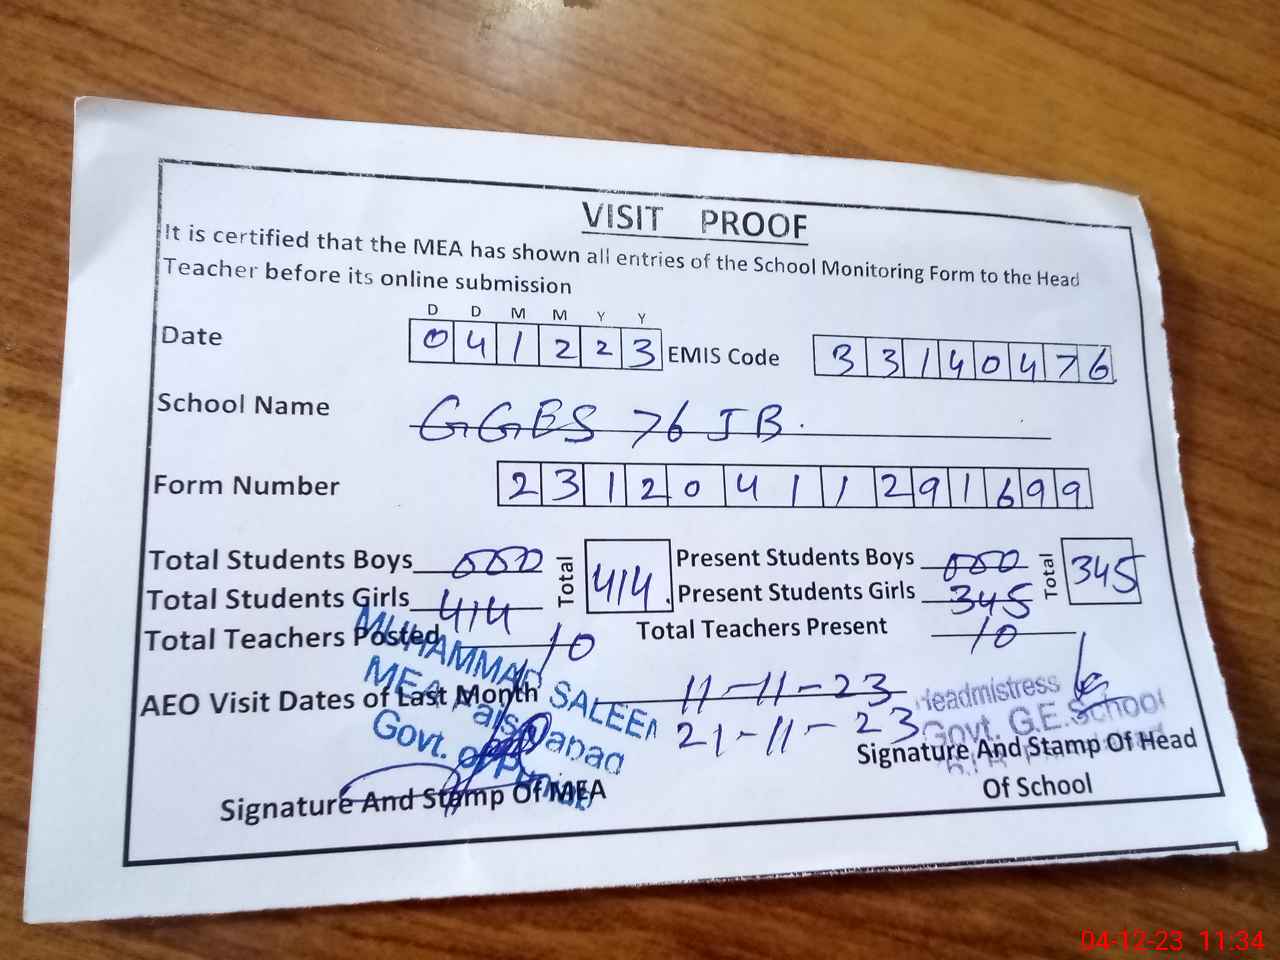 VISIT PROOF
It is certified that the MEA has shown all entries of the School Monitoring Form to the Head
Teacher before its online submission
D D M M Y Y
Date 0 4 1 2 2 3 EMIS Code 3 3 1 4 0 4 7 6
School Name GGES 76 JB.
Form Number 2 3 1 2 0 4 1 1 2 9 1 6 9 9
Total Students Boys 000 Total 414. Present Students Boys 000 Total 345
Total Students Girls 414 Present Students Girls 345
Total Teachers Posted 10 Total Teachers Present 10
MUHAMMAD SALEEM
MEA Faisalabad
Govt. of Punjab
AEO Visit Dates of Last Month 11-11-23
21-11-23
Headmistress
Govt. G.E. School
Signature And Stamp Of MEA
Signature And Stamp Of Head
Of School
04-12-23 11:34